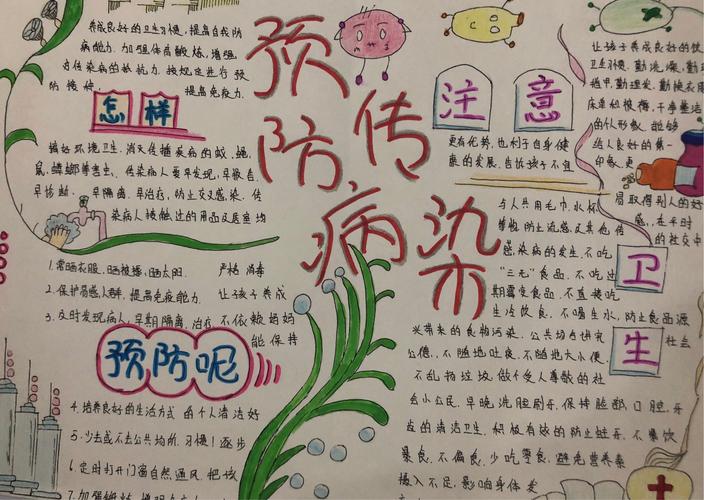 养成良好的卫生习惯，提高自我防
病能力．加强体育锻炼，增强
对传染病的抵抗力．按规定进行预
防接种，提高免疫力．
怎样
搞好环境卫生，消灭传播疾病的蚊、蝇、
鼠、蟑螂等害虫、传染病人要早发现，早报告．
早诊断．早隔离．早治疗，防止交叉感染．传
染病人接触过的用品及居室均
严格消毒
预防传
病染
1.常晒衣服、晒被褥，晒太阳．
2.保护易感人群，提高免疫能力．
3．及时发现病人，早期隔离，治疗
让孩子养成
不依赖妈妈
能保持
预防呢
4.培养良好的生活方式
的个人清洁好
5．少去或不去公共场所，
习惯！逐步
6.定时打开门窗自然通风
把被
注意
更有优势，也利于自身健
康的发展．告诉孩子不宜
与人共用毛巾、水杯
等物，防止流感及其他传
感染病的发生．不吃
“三无”食品、不吃过
期霉变食品．不直接吃
生冷饮食．不喝生水，防止食品源
来带来的食物污染．公共场合讲究
公德，不随地吐痰，不随地大小便
不乱扔垃圾．做个受人尊敬的社
会小公民．早晚洗脸刷牙．保持脸部、口腔、牙
齿的清洁卫生．积极有效的防止蛀牙．不餐饮
暴食．不偏食，少吃零食，避免营养素
摄入不足，影响身体发
让孩子养成良好的饮
卫生习惯．勤洗澡，勤
指甲，勤理发，勤换衣服
床单和被褥，干净整洁
的个人形象，能够
给人良好的第一
印象，更
易取得别人的好
感，在平时
的社交中
卫
生
社会